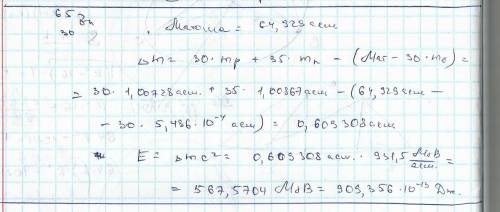 65
30 Zn . Матома = 64,929 аем
Δm = 30·mp + 35·mn − (Mат − 30·me) =
= 30·1,00728 аем. + 35·1,00867 аем − (64,929 аем −
− 30·5,486·10⁻⁴ аем) = 0,609308 аем
E = Δmc² = 0,609308 аем. · 931,5 МэВ/аем. =
= 567,5704 МэВ = 909,356·10⁻¹³ Дж.